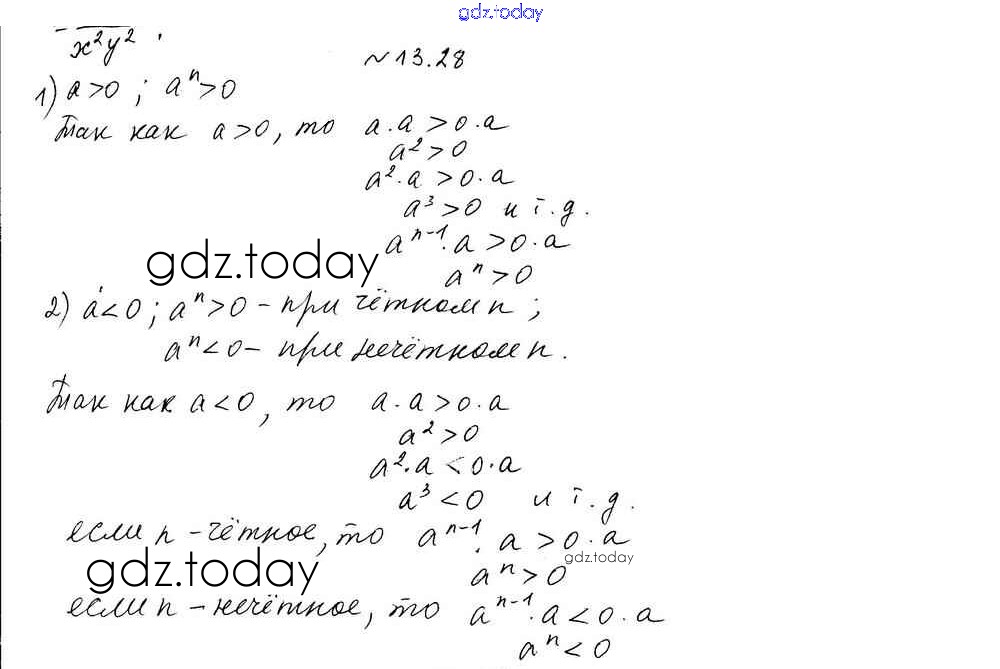 gdz.today
x²y²
№13.28
1) a>0 ; aⁿ>0
Так как a>0, то a·a>0·a
a²>0
a²·a>0·a
a³>0 и т.д.
aⁿ⁻¹·a>0·a
gdz.today
aⁿ>0
2) a<0; aⁿ>0 – при чётном n;
aⁿ<0 – при нечётном n.
Так как a<0, то a·a>0·a
a²>0
a²·a<0·a
a³<0 и т.д.
если n – чётное, то aⁿ⁻¹·a>0·a
gdz.today
gdz.today
aⁿ>0
если n – нечётное, то aⁿ⁻¹·a<0·a
aⁿ<0